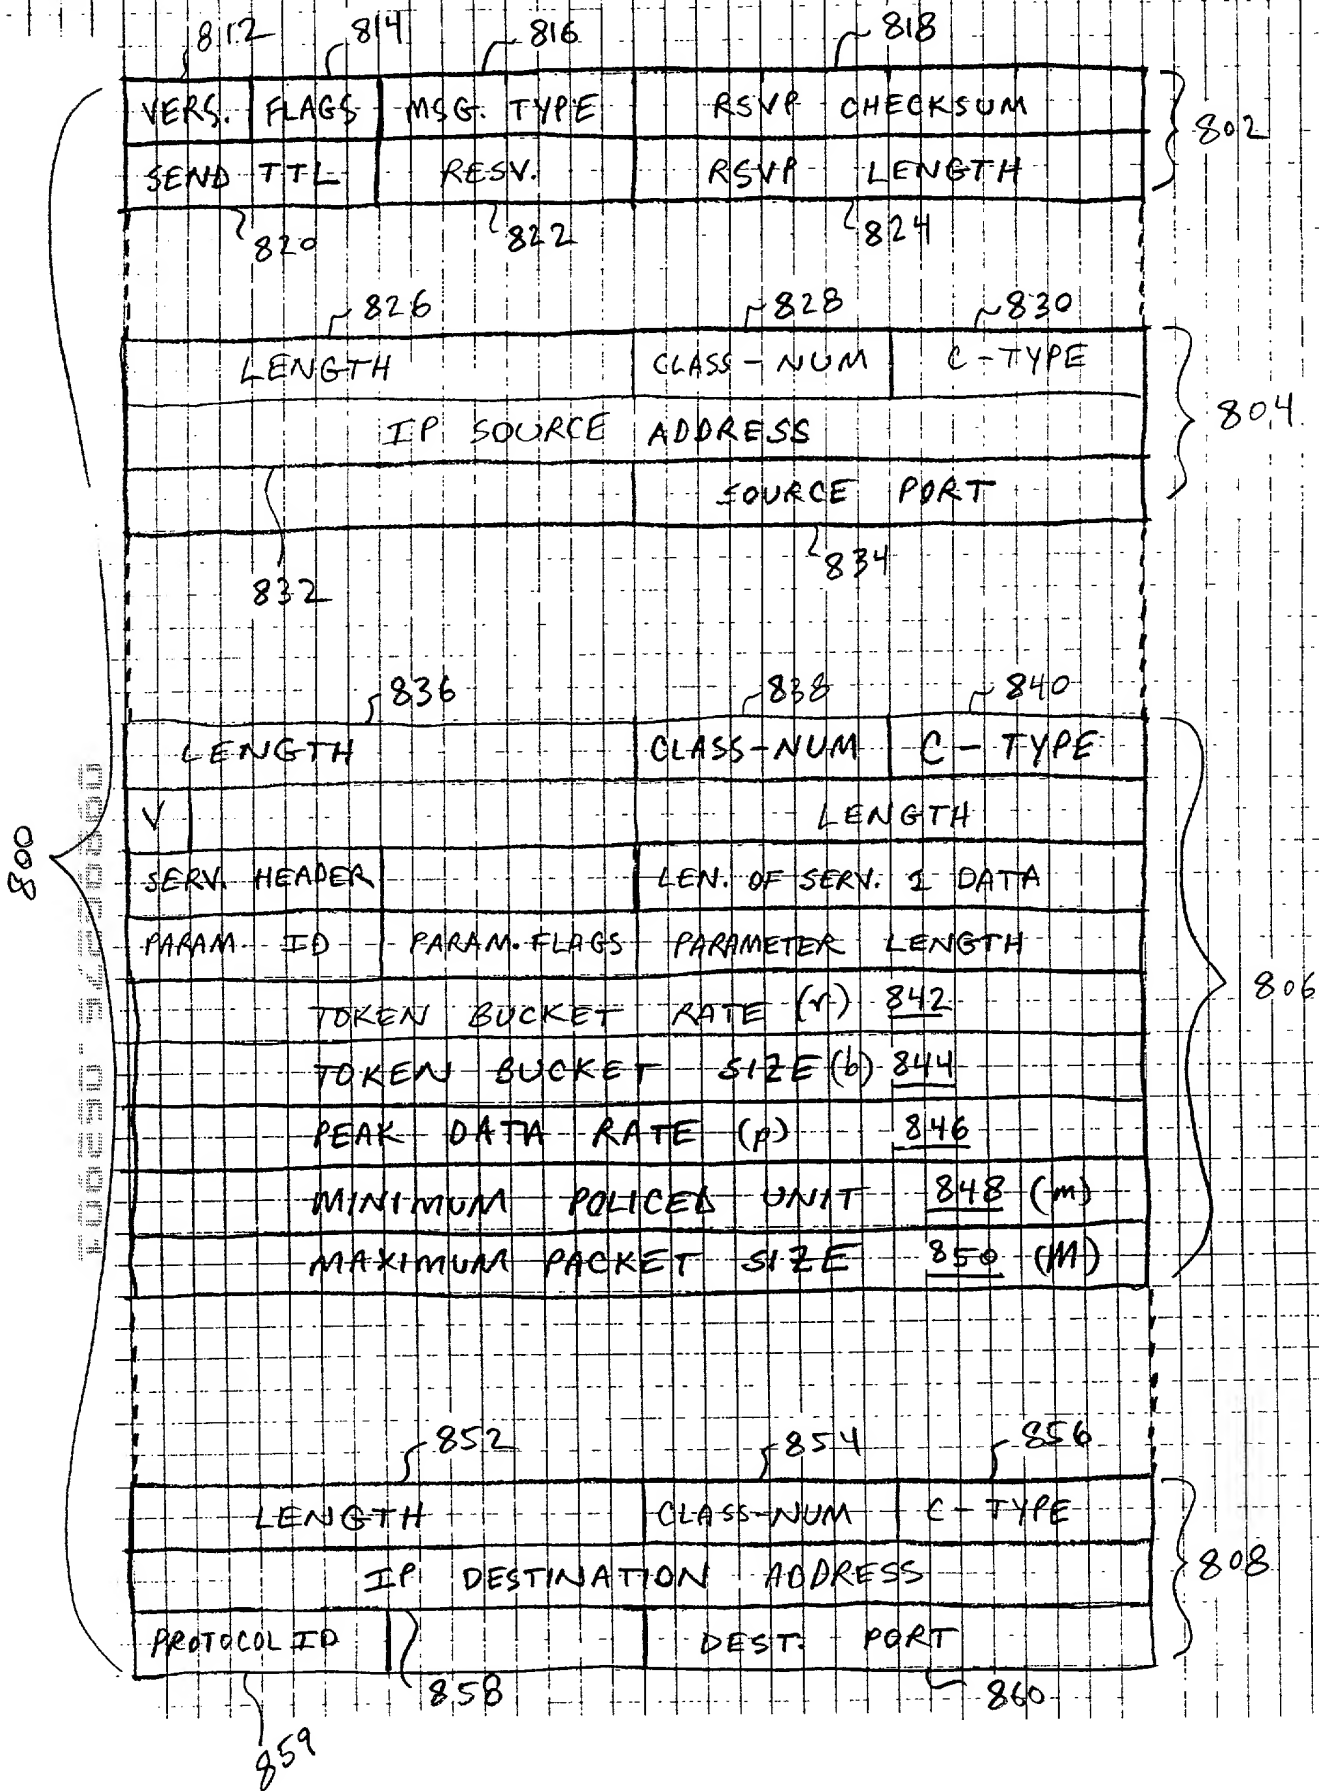 812 814 816 818
VERS. FLAGS MSG. TYPE RSVP CHECKSUM
802
SEND TTL RESV. RSVP LENGTH
820 822 824
826 828 830
LENGTH CLASS-NUM C-TYPE
804
IP SOURCE ADDRESS
SOURCE PORT
832 834
836 838 840
LENGTH CLASS-NUM C-TYPE
V LENGTH
800
SERV. HEADER LEN. OF SERV. 1 DATA
PARAM. ID PARAM. FLAGS PARAMETER LENGTH
806
TOKEN BUCKET RATE (r) 842
TOKEN BUCKET SIZE (b) 844
PEAK DATA RATE (p) 846
MINIMUM POLICED UNIT 848 (m)
MAXIMUM PACKET SIZE 850 (M)
852 854 856
LENGTH CLASS-NUM C-TYPE
IP DESTINATION ADDRESS
808
PROTOCOL ID DEST. PORT
858 860
859